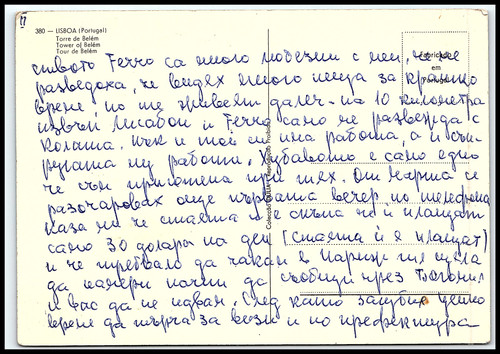 11
380 — LISBOA (Portugal)
Torre de Belém
Tower of Belém
Tour de Belém
Fabricado
em
Portugal
ството Гечо са много любезни с мен, че ме
разведоха, че видях много неща за кратко
време, но те живеят далеч - на 10 километра
извън Лисабон и Гечо само ме развежда с
колата. Пък и той си има работа, а и съ-
ругата му работи. Хубавото е само едно
че съм приютена при тях. От Мария се
разочаровах още първата вечер, по телефона
каза ми че стаята е скъпа че й плащат
само 30 долара на ден [стаята й я плащат]
и че трябвало да чакам в Париж тя щяла
да намери начин да съобщи чрез
и вас да не идвам. След като загубих ценно
време да търча за визи и по префектура